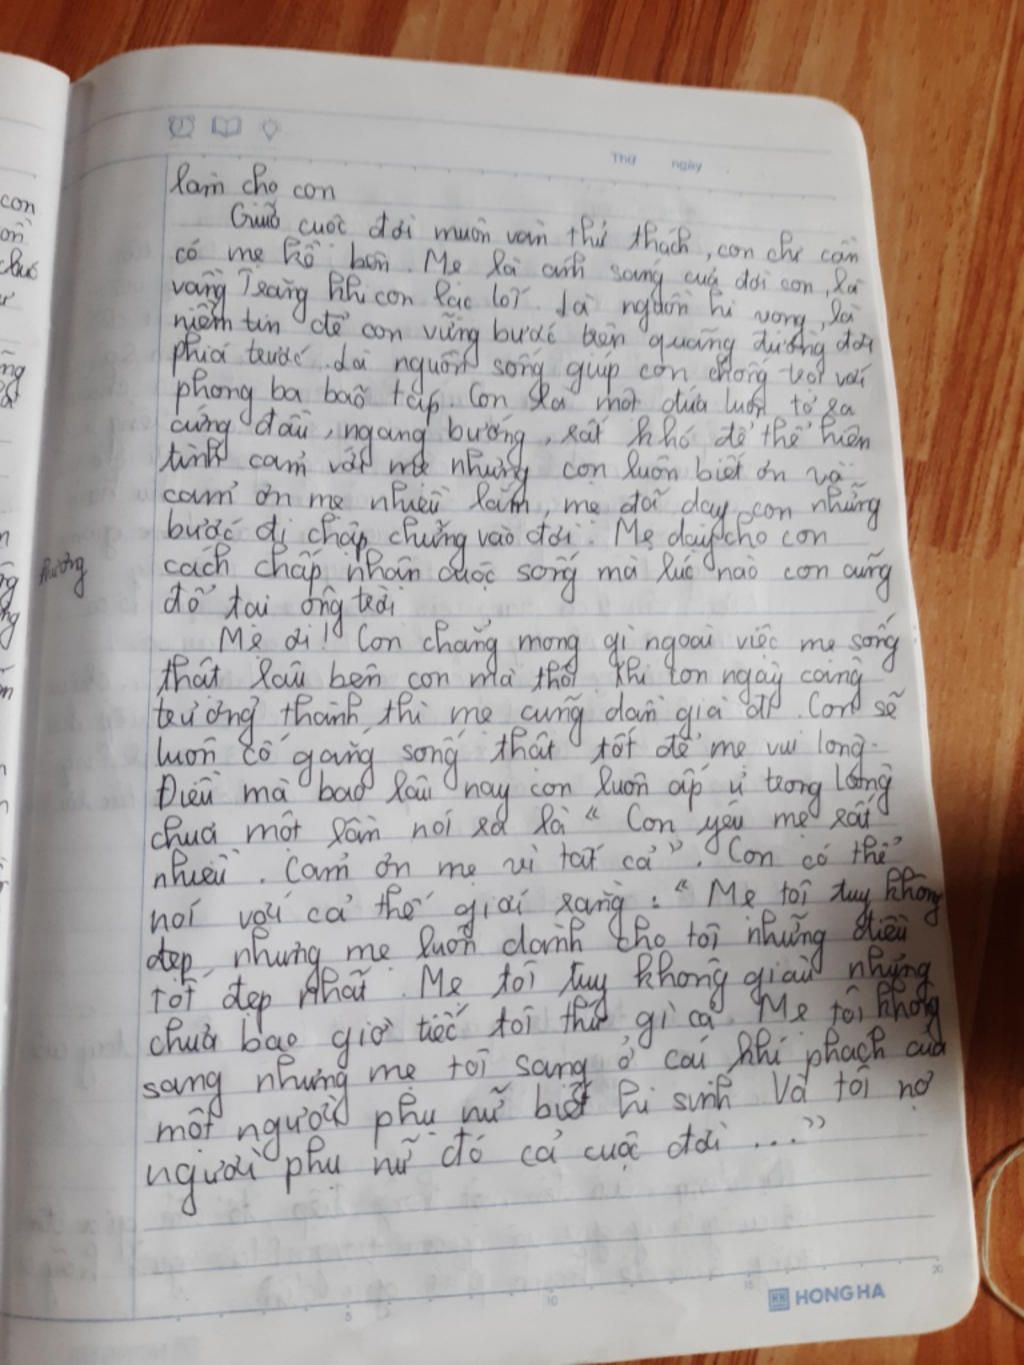 con
ồn
phương
Thứ ngày
làm cho con
Giữa cuộc đời muôn vàn thử thách, con chỉ cần
có mẹ kề bên. Mẹ là ánh sáng của đời con, là
vầng Trăng khi con lạc lối. Là nguồn hi vọng, là
niềm tin để con vững bước trên quãng đường đời
phía trước. Là nguồn sống giúp con chống trọi với
phong ba bão táp. Con là một đứa luôn tỏ ra
cứng đầu, ngang bướng, rất khó để thể hiện
tình cảm với mẹ nhưng con luôn biết ơn và
cảm ơn mẹ nhiều lắm, mẹ đã dạy con những
bước đi chập chững vào đời. Mẹ dạy cho con
cách chấp nhận cuộc sống mà lúc nào con cũng
đổ tại ông trời
Mẹ ơi! Con chẳng mong gì ngoài việc mẹ sống
thật lâu bên con mà thôi khi con ngày càng
trưởng thành thì mẹ cũng dần già đi. Con sẽ
luôn cố gắng sống thật tốt để mẹ vui lòng.
Điều mà bao lâu nay con luôn ấp ủ trong lòng
chưa một lần nói ra là “ Con yêu mẹ rất
nhiều. Cảm ơn mẹ vì tất cả”. Con có thể
nói với cả thế giới rằng : “ Mẹ tôi tuy không
đẹp, nhưng mẹ luôn dành cho tôi những điều
tốt đẹp nhất. Mẹ tôi tuy không giàu nhưng
chưa bao giờ tiếc tôi thứ gì cả. Mẹ tôi không
sang nhưng mẹ tôi sang ở cái khí phách của
một người phụ nữ biết hi sinh Và tôi nợ
người phụ nữ đó cả cuộc đời ...”
5 10 15 20
HONG HA